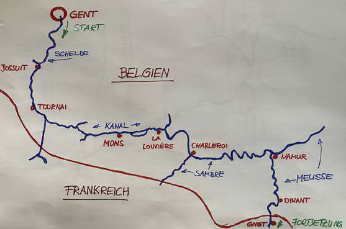 GENT
START
SCHELDE
BOSSUIT
BELGIEN
TOURNAI
KANAL
MONS
LA
LOUVIÈRE
CHARLEROI
NAMUR
SAMBRE
MEUSE
FRANKREICH
DINANT
GIVET
FORTSETZUNG